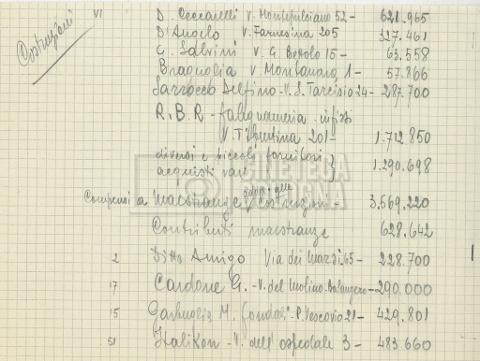 Costruzioni
VI D. Ceccarelli v. Montepulciano 52 - 621.965
D'Angelo v. Farnesina 205 327.461
C. Salvini v. G. Bettolo 15 - 63.558
Bragnolia v. Montanara 1 - 57.866
Sarrocco Delfino - V. S. Tarcisio 24 - 287.700
R.B.R - falegnameria infissi
V. Tiburtina 201 - 1.712.850
diversi e piccoli fornitori
acquisti vari 1.290.698
Compensi a maestranze costruzioni - 3.569.220
Contributi maestranze 628.642
2 Ditta Amigo Via dei Marsi 65 - 228.700
17 Cardone G. - V. del Molino - 290.000
15 M. - P. Vescovio 21 - 429.801
51 Italikon - V. dell'ospedale 3 - 483.660
CINETECA
BOLOGNA